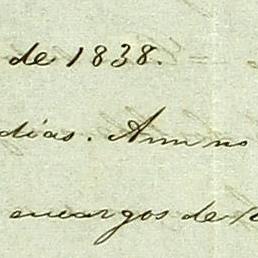 de 1838.
dias. Ann no
encargos de